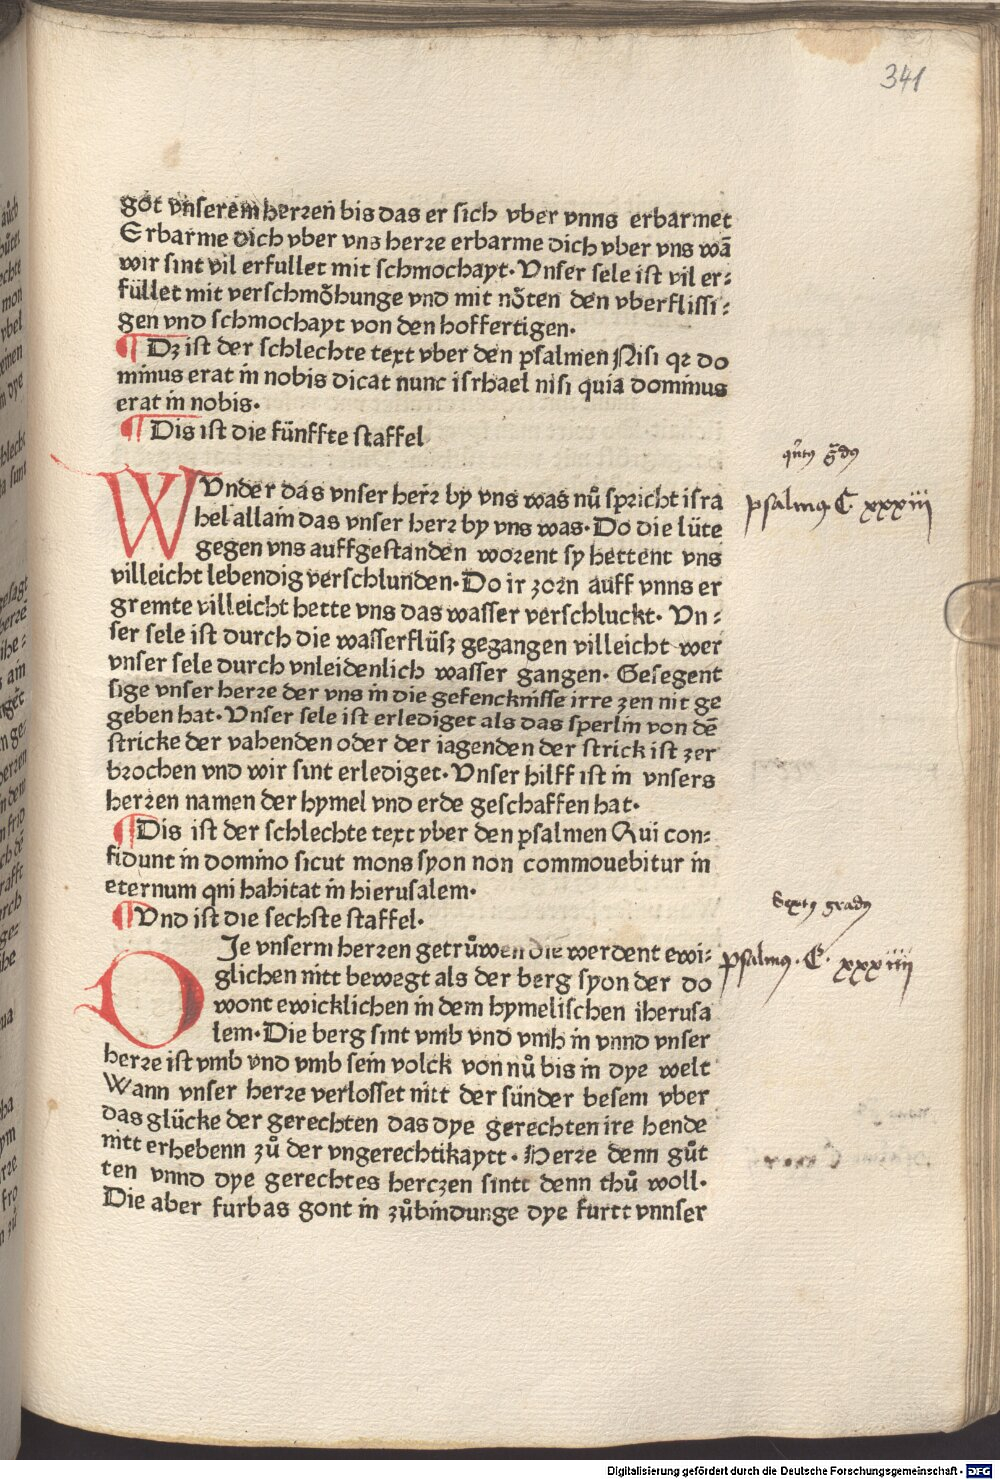 341
got vnserem herren bis das er sich vber vnns erbarmet
Erbarme dich vber vns herre erbarme dich vber vns wā
wir sint vil erfullet mit schmochayt. Vnser sele ist vil er⸗
füllet mit verschmo̊hunge vnd mit no̊ten den vberflissi⸗
gen vnd schmochayt von den hoffertigen.
¶ Dz ist der schlechte text vber den psalmen Nisi qꝛ do
minus erat in nobis dicat nunc isrhael nisi quia dominus
erat in nobis.
¶ Dis ist die fünffte staffel
WVnder das vnser herr by vns was nů spricht isra
hel allain das vnser herr by vns was. Do die lüte
gegen vns auffgestanden worent sy hettent vns
villeicht lebendig verschlunden. Do ir zorn auff vnns er
gremte villeicht hette vns das wasser verschluckt. Vn⸗
ser sele ist durch die wasserflüsz gegangen villeicht wer
vnser sele durch vnleidenlich wasser gangen. Gesegent
sige vnser herre der vns in die gefencknisse irre zen nit ge
geben hat. Vnser sele ist erlediget als das sperlin von dē
stricke der vahenden oder der iagenden der strick ist zer
brochen vnd wir sint erlediget. Vnser hilff ist in vnsers
herren namen der hymel vnd erde geschaffen hat.
¶ Dis ist der schlechte text vber den psalmen Qui con⸗
fidunt in domino sicut mons syon non commouebitur in
eternum qni habitat in hierusalem.
¶ Vnd ist die sechste staffel.
DIe vnserm herren getrůwen die werdent ewi⸗
glichen nitt bewegt als der berg syon der do
wont ewicklichen in dem hymelischen iherusa
lem. Die berg sint vmb vnd vmb in vnnd vnser
herre ist vmb vnd vmb sein volck von nů bis in dye welt
Wann vnser herre verlosset nitt der sünder besem vber
das glücke der gerechten das dye gerechten ire hende
nitt erhebenn zů der vngerechtikaytt. Herre denn gůt
ten vnnd dye gerechtes herczen sintt denn thů woll.
Die aber furbas gont in zůbindunge dye furtt vnnser
qͥntꝰ g̃dꝰ
psalmꝰ C xxxiii
Sextꝰ gradꝰ
psalmꝰ. C. xxxiiii
Digitalisierung gefördert durch die Deutsche Forschungsgemeinschaft - DFG